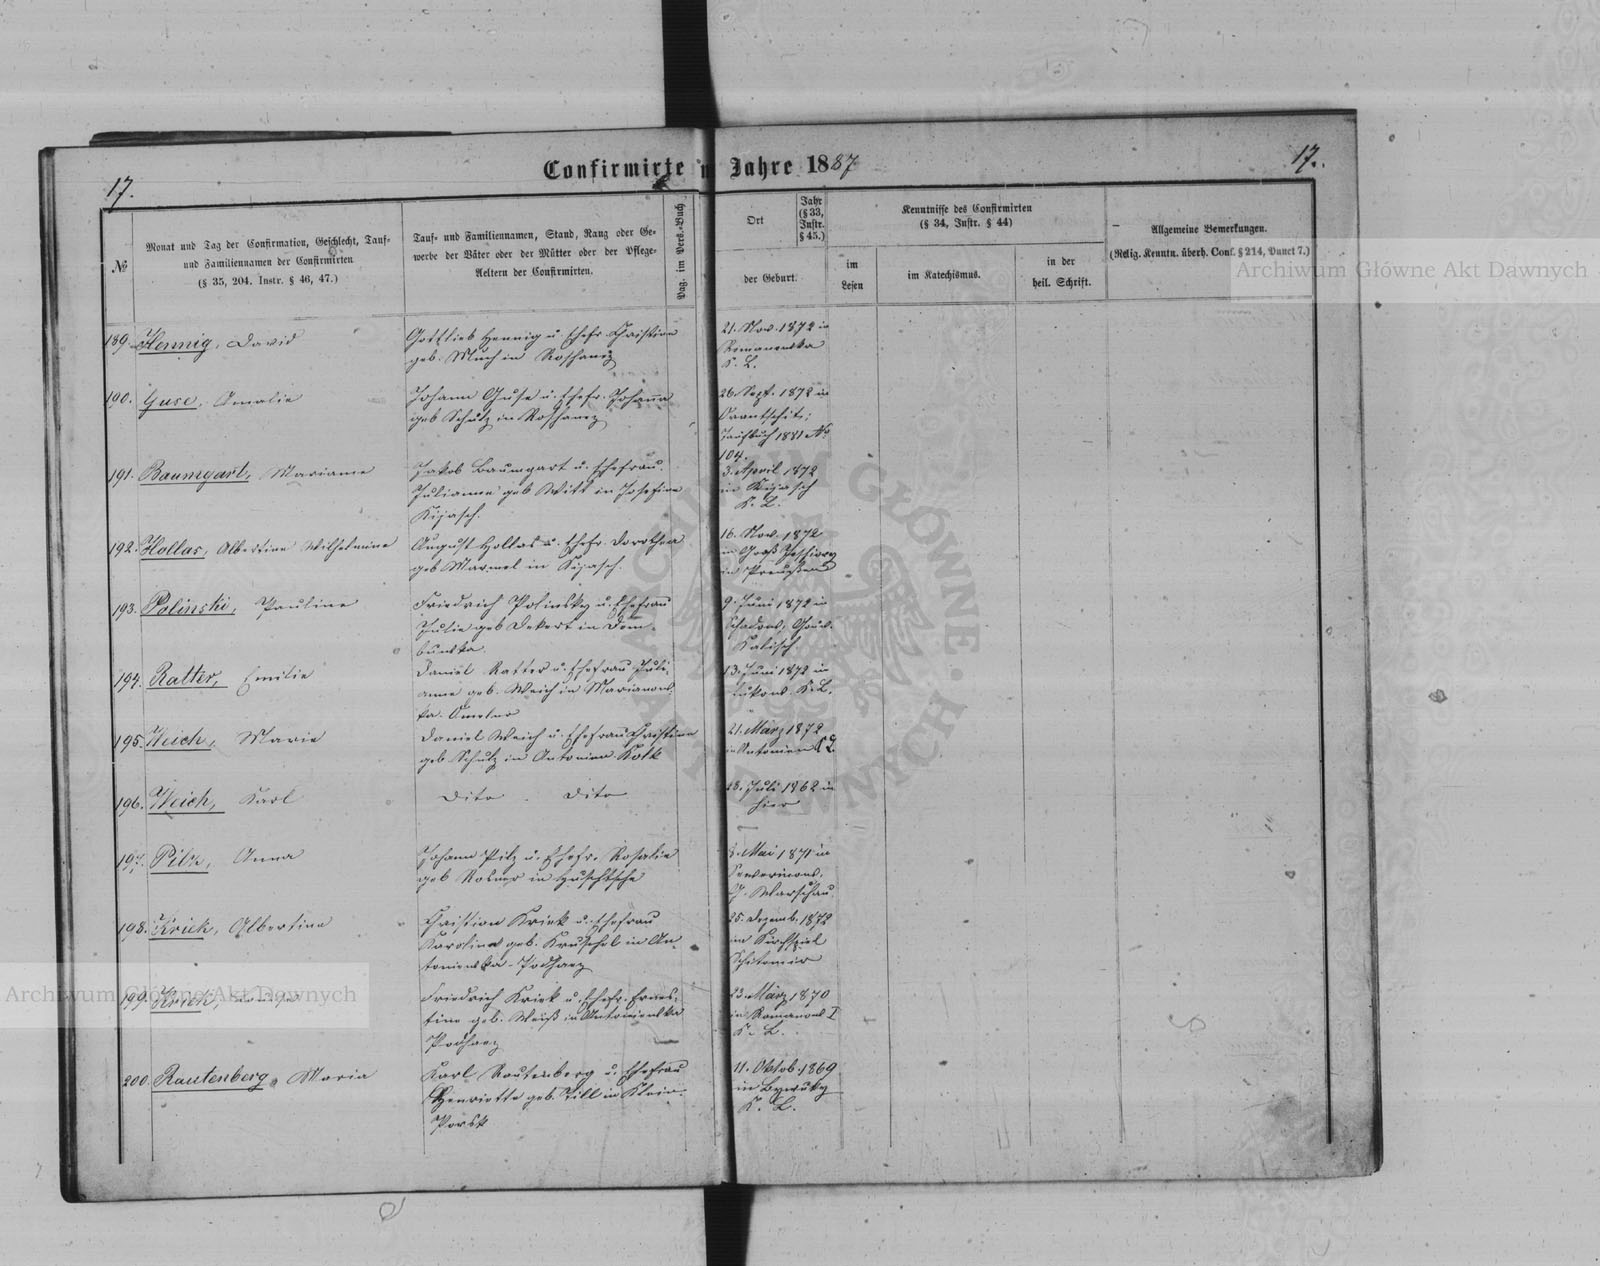 Confirmirte im Jahre 1887
17.
17.
№
Monat und Tag der Confirmation, Geschlecht, Tauf-
und Familiennamen der Confirmirten
(§ 35, 204. Instr. § 46, 47.)
Tauf- und Familiennamen, Stand, Rang oder Ge-
werbe der Väter oder der Mütter oder der Pflege-
Aeltern der Confirmirten.
Pag. im Pers.-Buch
Ort
Jahr
(§ 33,
Instr.
§ 45.)
der Geburt.
Kenntnisse des Confirmirten
(§ 34, Instr. § 44)
im
Lesen
im Katechismus.
in der
heil. Schrift.
Allgemeine Bemerkungen.
(Relig. Kenntn. überh. Conf. § 214, Punct 7.)
Archiwum Główne Akt Dawnych
189. Hennig, David
Gottlieb Hennig u. Ehefr. Christine
geb. Much in Roschanez
21. Nov. 1872 in
Romanowka
K. L.
190. Guse, Amalie
Johann Guse u. Ehefr. Johanna
geb Schulz in Roschanez
26. Sept. 1872 in
Taufbuch 1881 №
104.
191. Baumgart, Marianne
Jakob Baumgart u. Ehefrau
Julianne geb Witt in Josefine
Kijasch.
3. April 1872
in Kijasch
K. L.
192. Hollas, Albertine Wilhelmine
August Hollas u. Ehefr. Dorothea
geb Marmel in Kijasch.
16. Nov. 1872
in Groß
in Preußen
193. Polinski, Pauline
Friedrich Polinsky u. Ehefrau
Julie geb Dekert in Dom-
browka.
9. Juni 1872 in
Gouv.
Kalisch.
194. Ratter, Emilie
Daniel Ratter u. Ehefrau Juli-
anne geb. Weich in Marianow-
ka
13. Juni 1872 in
Lukow. K. L.
195. Weich, Marie
Daniel Weich u. Ehefrau Christine
geb. Schulz in Antonien Kolk
21. März 1872
in Antonien K. L.
196. Weich, Karl
Dito . Dito
Juli 1862 in
hier
197. Pilz, Anna
Johann Pilz u. Ehefr. Rosalie
geb Rosner in
8. Mai 1871 in
G. Warschau
198. Kriek, Albertine
Christion Kriek u. Ehefrau
Karoline geb. Kruschel in An-
toniewka-Podhaez
25. Dezemb. 1872
im Kirchspiel
Schitomir
199. Kriek,
Friedrich Kriek u. Ehefr. Ernes-
tine geb. Weiß in Antoniewka
Podhaez
23. März 1870
in Romanow I
K. L.
200. Rautenberg, Maria
Karl Rautenberg u. Ehefrau
Henriette geb. Till in Klein-
Porsk
11. Oktob. 1869
in
K. L.
Archiwum Główne Akt Dawnych
ARCHIWUM GŁÓWNE AKT DAWNYCH